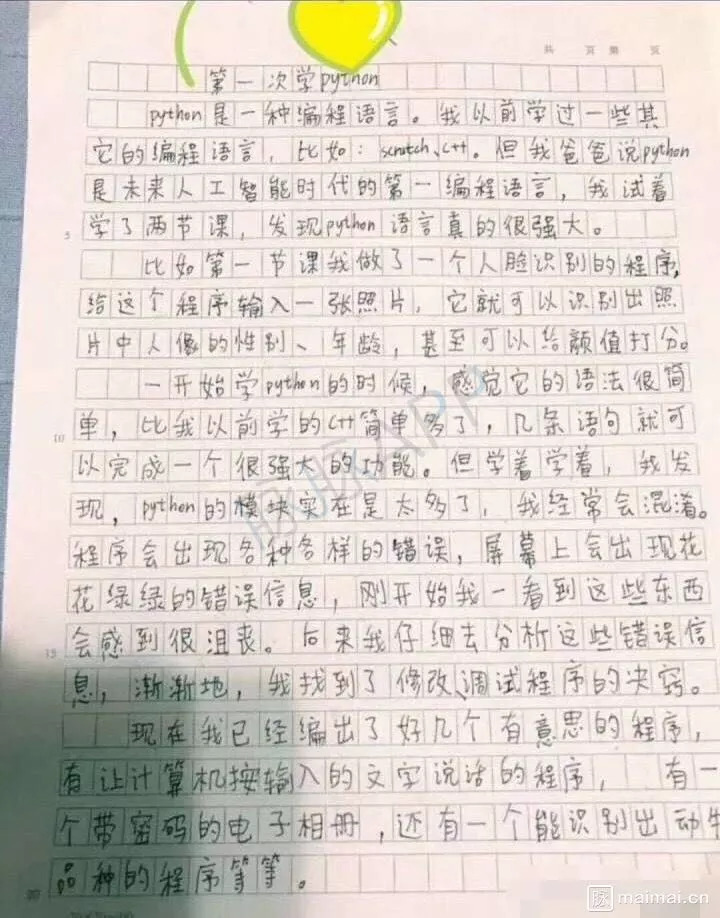 共 页 第 页
第一次学python
python是一种编程语言。我以前学过一些其
它的编程语言，比如：scratch、c++。但我爸爸说python
是未来人工智能时代的第一编程语言，我试着
5
学了两节课，发现python语言真的很强大。
比如第一节课我做了一个人脸识别的程序，
给这个程序输入一张照片，它就可以识别出照
片中人像的性别、年龄，甚至可以给颜值打分。
一开始学python的时候，感觉它的语法很简
10
单，比我以前学的c++简单多了，几条语句就可
以完成一个很强大的功能。但学着学着，我发
现，python的模块实在是太多了，我经常会混淆。
程序会出现各种各样的错误，屏幕上会出现花
花绿绿的错误信息，刚开始我一看到这些东西
15
会感到很沮丧。后来我仔细去分析这些错误信
息，渐渐地，我找到了修改、调试程序的决窍。
现在我已经编出了好几个有意思的程序，
有让计算机按输入的文字说话的程序，有一
个带密码的电子相册，还有一个能识别出动
20
品种的程序等等。
脉脉APP
maimai.cn